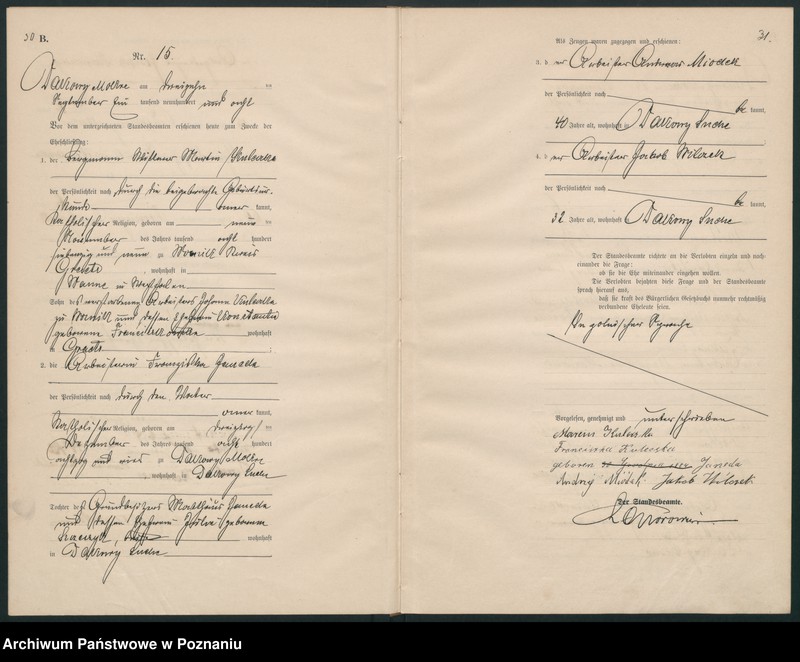 30 B.
Nr. 15
Dakowy Mokre am dreizehn ten
September ein tausend neunhundert und acht
Vor dem unterzeichneten Standesbeamten erschienen heute zum Zwecke der
Eheschließung:
1. der Bergmann Martin
der Persönlichkeit nach durch die beigebrachte Geburtsur-
kunde kannt,
katholischer Religion, geboren am neun ten
November des Jahres tausend acht hundert
siebenzig und neun zu Kreis
, wohnhaft in
in Westfalen
Sohn des verstorbenen Arbeiters Johann
zu und dessen Ehefrau
geborene wohnhaft
in
2. die Arbeiterin Franziska Janeda
der Persönlichkeit nach durch den Vater
kannt,
katholischer Religion, geboren am dreizehn ten
Dezember des Jahres tausend acht hundert
achtzig und vier zu Dakowy Mokre
, wohnhaft in Dakowy Suche
Tochter des Grundbesitzers Matthäus Janeda
und dessen Ehefrau Julia geborene
wohnhaft
in Dakowy Suche
31.
Als Zeugen waren zugezogen und erschienen:
3. der Arbeiter Andreas Miodek
der Persönlichkeit nach
be kannt,
40 Jahre alt, wohnhaft in Dakowy Suche
4. der Arbeiter Jakob Wilczek
der Persönlichkeit nach
be kannt,
32 Jahre alt, wohnhaft Dakowy Suche
Der Standesbeamte richtete an die Verlobten einzeln und nach-
einander die Frage:
ob sie die Ehe miteinander eingehen wollen.
Die Verlobten bejahten diese Frage und der Standesbeamte
sprach hierauf aus,
daß sie kraft des Bürgerlichen Gesetzbuchs nunmehr rechtmäßig
verbundene Eheleute seien.
In polnischer Sprache
Vorgelesen, genehmigt und unterschrieben
Marcin
Franciszka
geboren Janeda
Andrzej Miodek Jakob Wilczek
Der Standesbeamte.
Archiwum Państwowe w Poznaniu